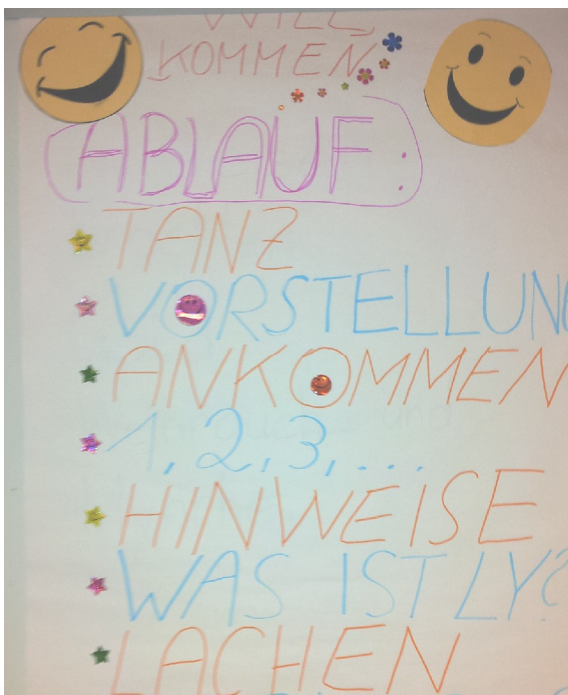 WILL
KOMMEN
ABLAUF:
TANZ
VORSTELLUNG
ANKOMMEN
1, 2, 3, ...
HINWEISE
WAS IST LY?
LACHEN